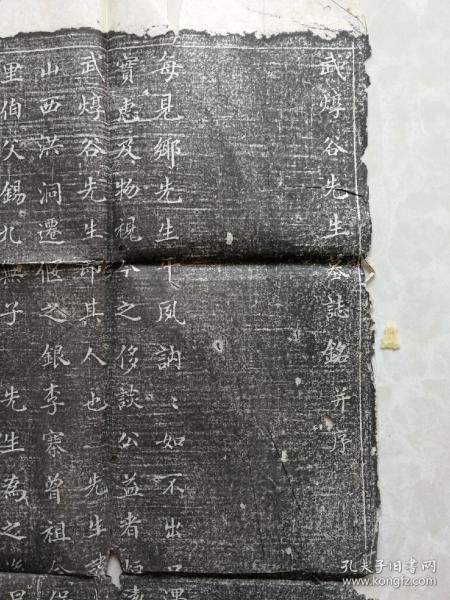 武焞谷先生墓誌銘并序
每見鄉先生平夙訥訥如不出口遇
實惠及物視今之侈談公益者
武焞谷先生即其人也先生
山西洪洞遷偃之銀李寨曾祖
里伯父錫九無子先生為之
孔夫子旧书网
book.kongfz.com